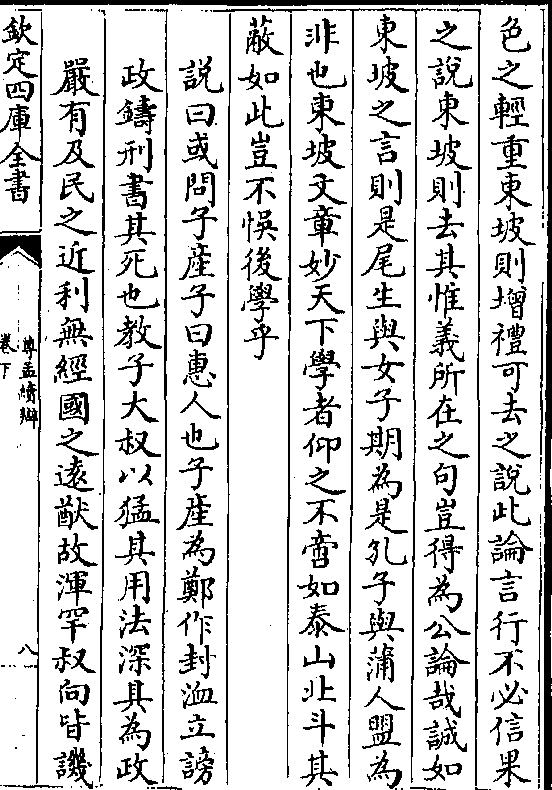 色之輕重東坡則增禮可去之說此論言行不必信果
之說東坡則去其惟義所在之句豈得為公論哉誠如
東坡之言則是尾生與女子期為是孔子與蒲人盟為
非也東坡文章妙天下學者仰之不啻如泰山北斗其
蔽如此豈不悞後學乎
說曰或問子産子曰惠人也子産為鄭作封洫立謗
政鑄刑書其死也教子大叔以猛其用法深其為政
嚴有及民之近利無經國之遠猷故渾罕叔向皆譏
欽定四庫全書
尊孟續辨
卷下
八